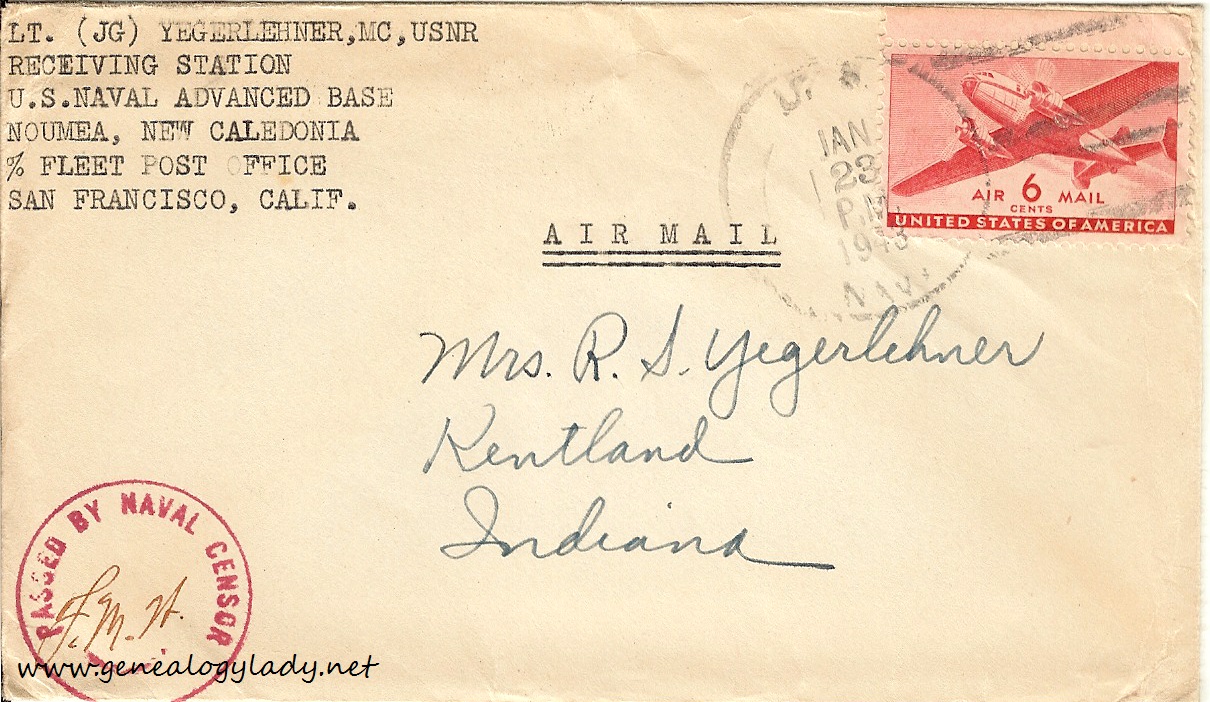 LT. (JG) YEGERLEHNER,MC,USNR
RECEIVING STATION
U.S.NAVAL ADVANCED BASE
NOUMEA, NEW CALEDONIA
% FLEET POST OFFICE
SAN FRANCISCO, CALIF.
U. S.
JAN
23
P.M.
1943
NAVY
AIR 6 MAIL
CENTS
UNITED STATES OF AMERICA
AIR MAIL
Mrs. R. S. Yegerlehner
Kentland
Indiana
PASSED BY NAVAL CENSOR
F.M.H.
www.genealogylady.net